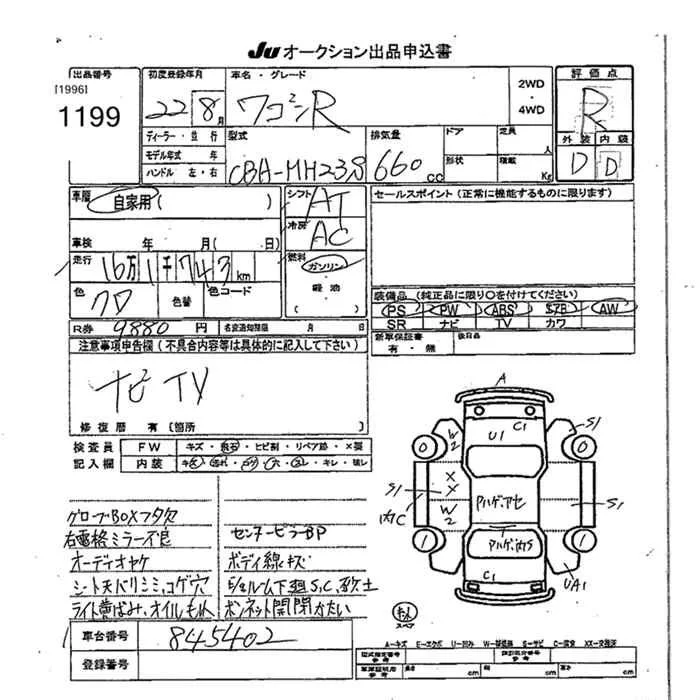 JU オークション出品申込書
出品番号 初度登録年月 車名・グレード 2WD ・ 4WD 評価点
[1996]
1199 22 8月 ワゴンR R
外装 内装
D D
ディーラー・並行 型式 排気量 ドア 定員 人
モデル年式 年 CBA-MH23S 660cc 形状 積載 Kg
ハンドル 左・右
車歴 自家用( ) シフト AT セールスポイント (正常に機能するものに限ります)
冷房 AC
車検 年 月( 日)
走行 16万1千743km 燃料 ガソリン
軽油
( )
色 クロ 色替 色コード 装備品 (純正品に限り○を付けてください)
PS PW ABS AW
SR ナビ TV カワ
R券 9880円 名変通知期限 月 日 新車保証書 有・無 後日品
注意事項申告欄 (不具合内容等は具体的に記入して下さい)
ナビ TV
修復歴 有 [箇所
検査員 FW キズ・飛石・ヒビ割・リペア跡・×要
記入欄 内装 キズ・汚れ・コゲ・穴・ヌレ・キレ・破レ
A
S1 C1 U1 b2 0 0
S1 XX W2 内C S1
ハゲ、アセ
ハゲ、凹S
1 1 C1 UA1
グローブBOXフタ欠
右電格ミラー不良 センターピラーBP
オーディオヤケ ボディ線キズ
シート天バリシミ、コゲ穴 下廻S,C,
ライト黄ばみ、オイルもれ ボンネット開閉かたい
スペア
車台番号 845402
登録番号
A=キズ E=エクボ U=凹ミ W=修理跡 S=サビ C=腐食 XX=交換済
型式指定番号 参考 類別区分番号 参考
車庫証明用 参考 長さ cm 幅 cm 高さ cm